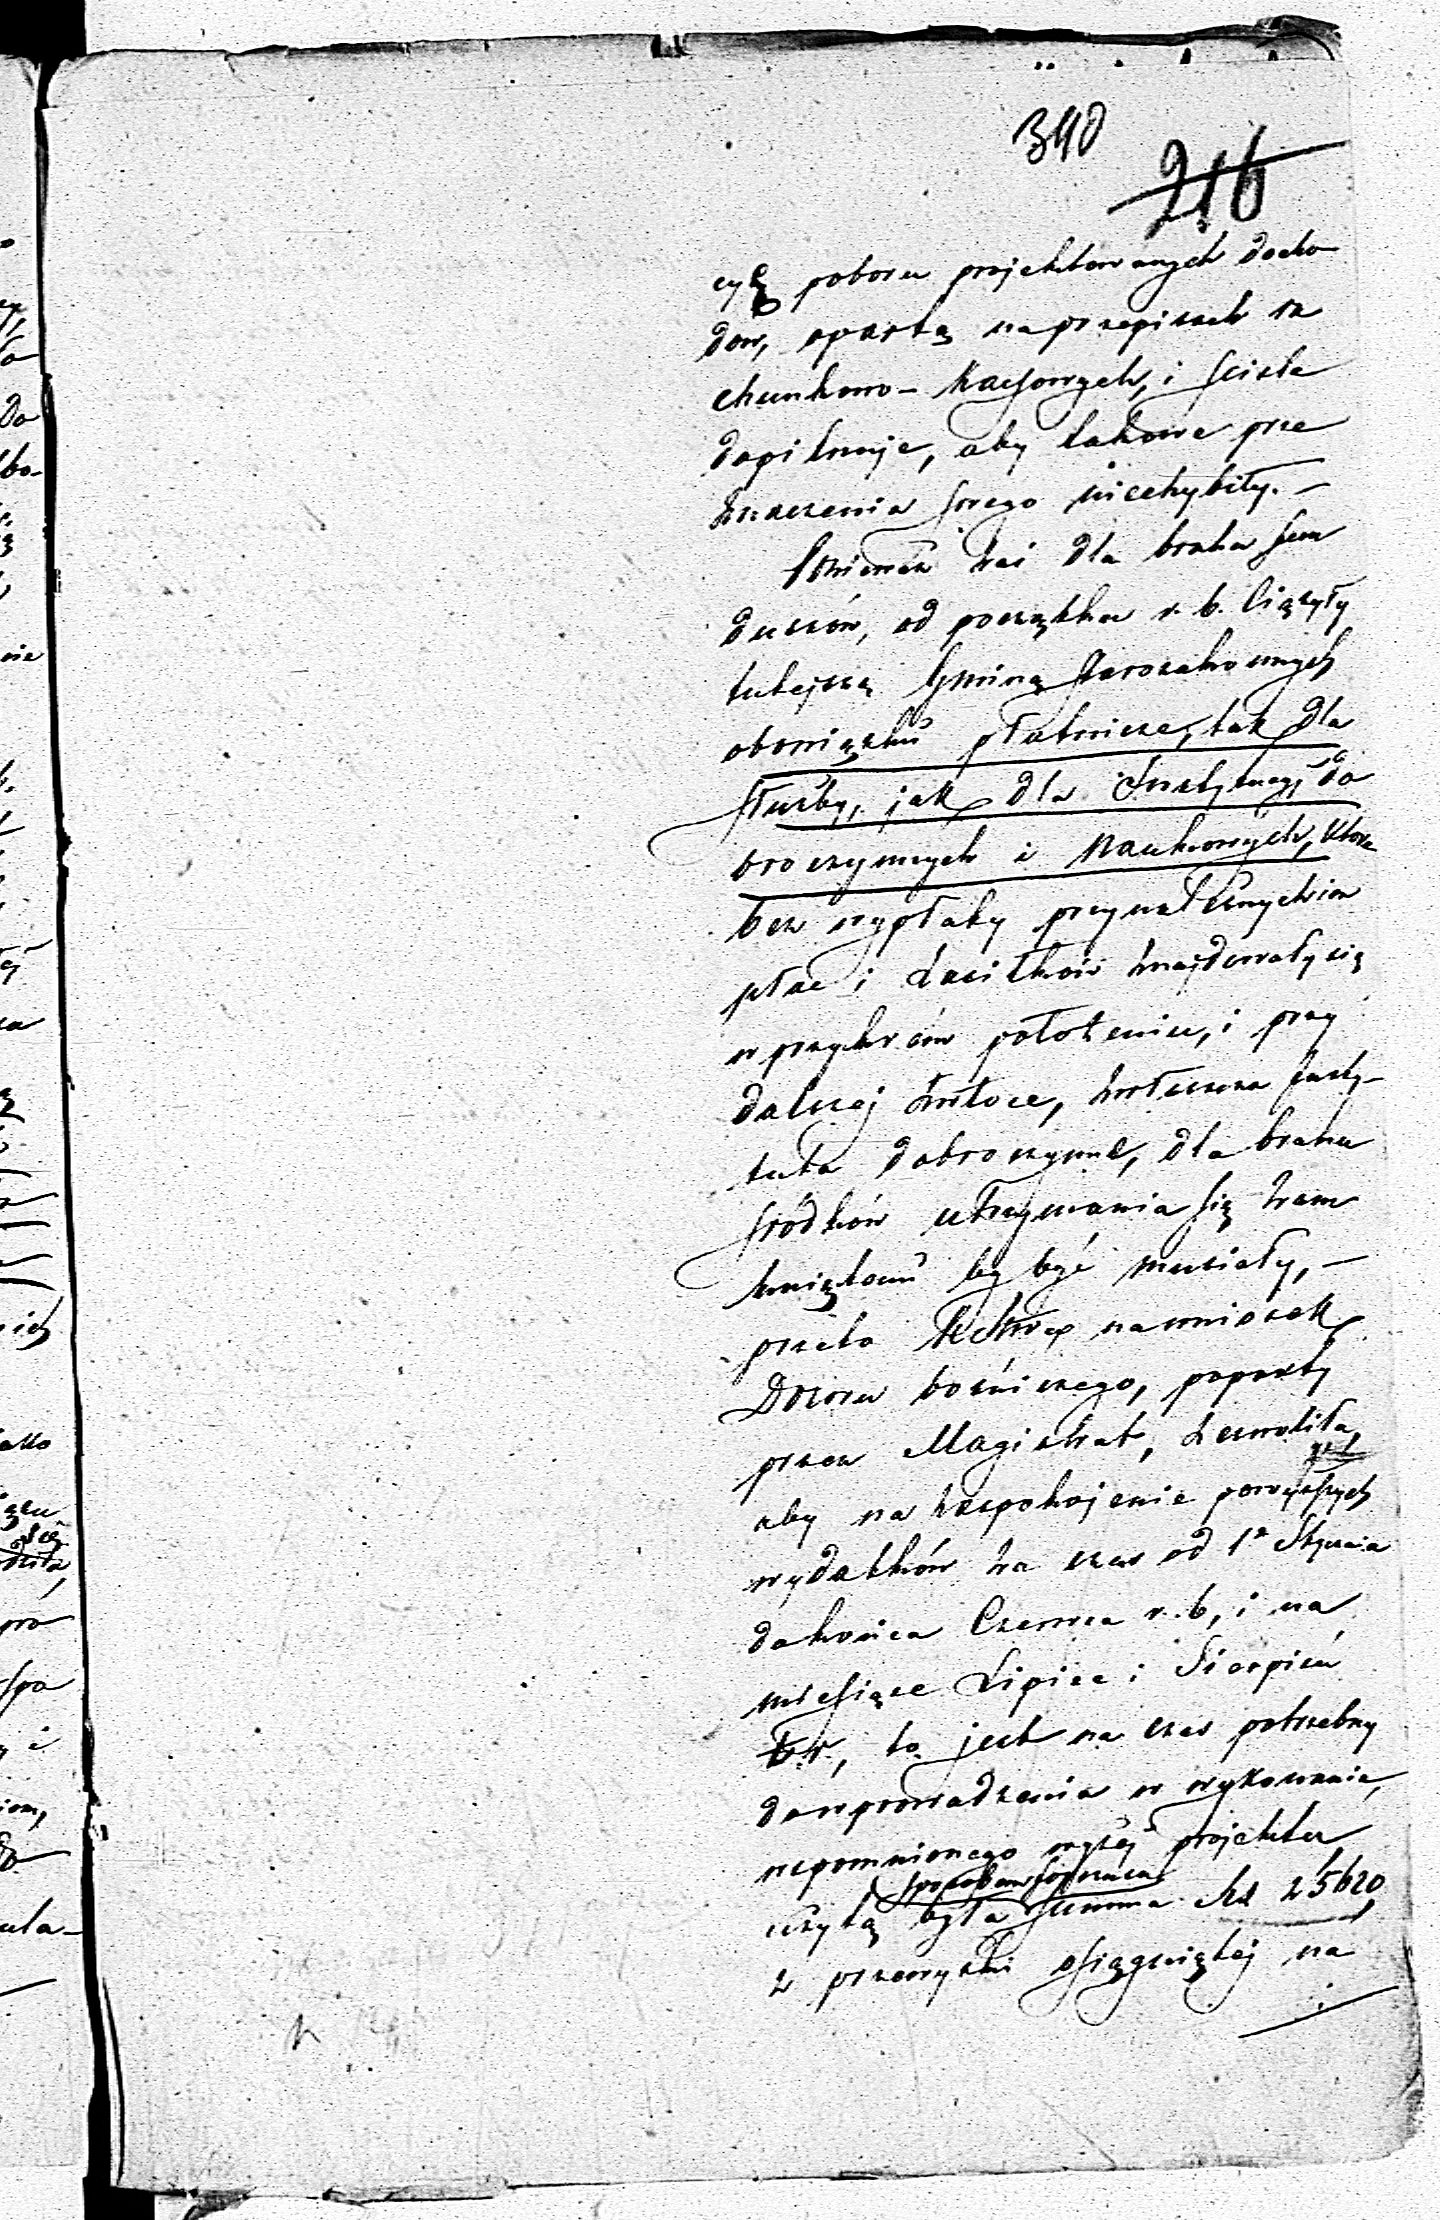 340
216
cyę poboru projektowanych docho
dów, opartą na przepisach ra
chunkowo - Kassowych, i ściśle
dopilnuje, aby takowe prze
znaczenia swego niechybiły. —
Ponieważ zaś dla braku fun
duszów, od początku r. b. ciążyły
tutejszą Gminę Starozakonnych
obowiązki płatnicze, tak dla
służby, jak dla Instytucyj do
broczynnych i Naukowych, które
bez wypłaty przynależnych im
płac i zasiłków znajdowały się
w przykrém położeniu, i przy
dalszej zwłoce, zwłaszcza Insty-
tuta dobroczynne, dla braku
środków utrzymania się zam
kniętemi by być musiały, —
przeto na wniosek
Dozoru bóźniczego, poparty
przez Magistrat, zezwoliła,
aby na zaspokojenie powyższych
wydatków za czas od 1º Stycznia
do końca Czerwca r. b, i na
miesiące Lipiec i Sierpień
t. r., to jest na czas potrzebny
do wprowadzenia w wykonanie,
wspomnionego wyżej projektu
sposobem pożyczki
użytą była summa Rs 25620,
z przewyżki osiągniętéj na